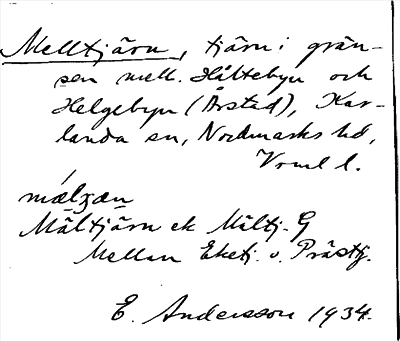 Melltjärn, tjärn i grän-
sen mell. Håltebyn och
Helgebyn (Årstad), Kar-
landa sn, Nordmarks hd,
Vrml l.
mælʒæn
Mältjärn ek Mältj. G
Mellan Eketj. o. Prästtj.
E. Andersson 1934.